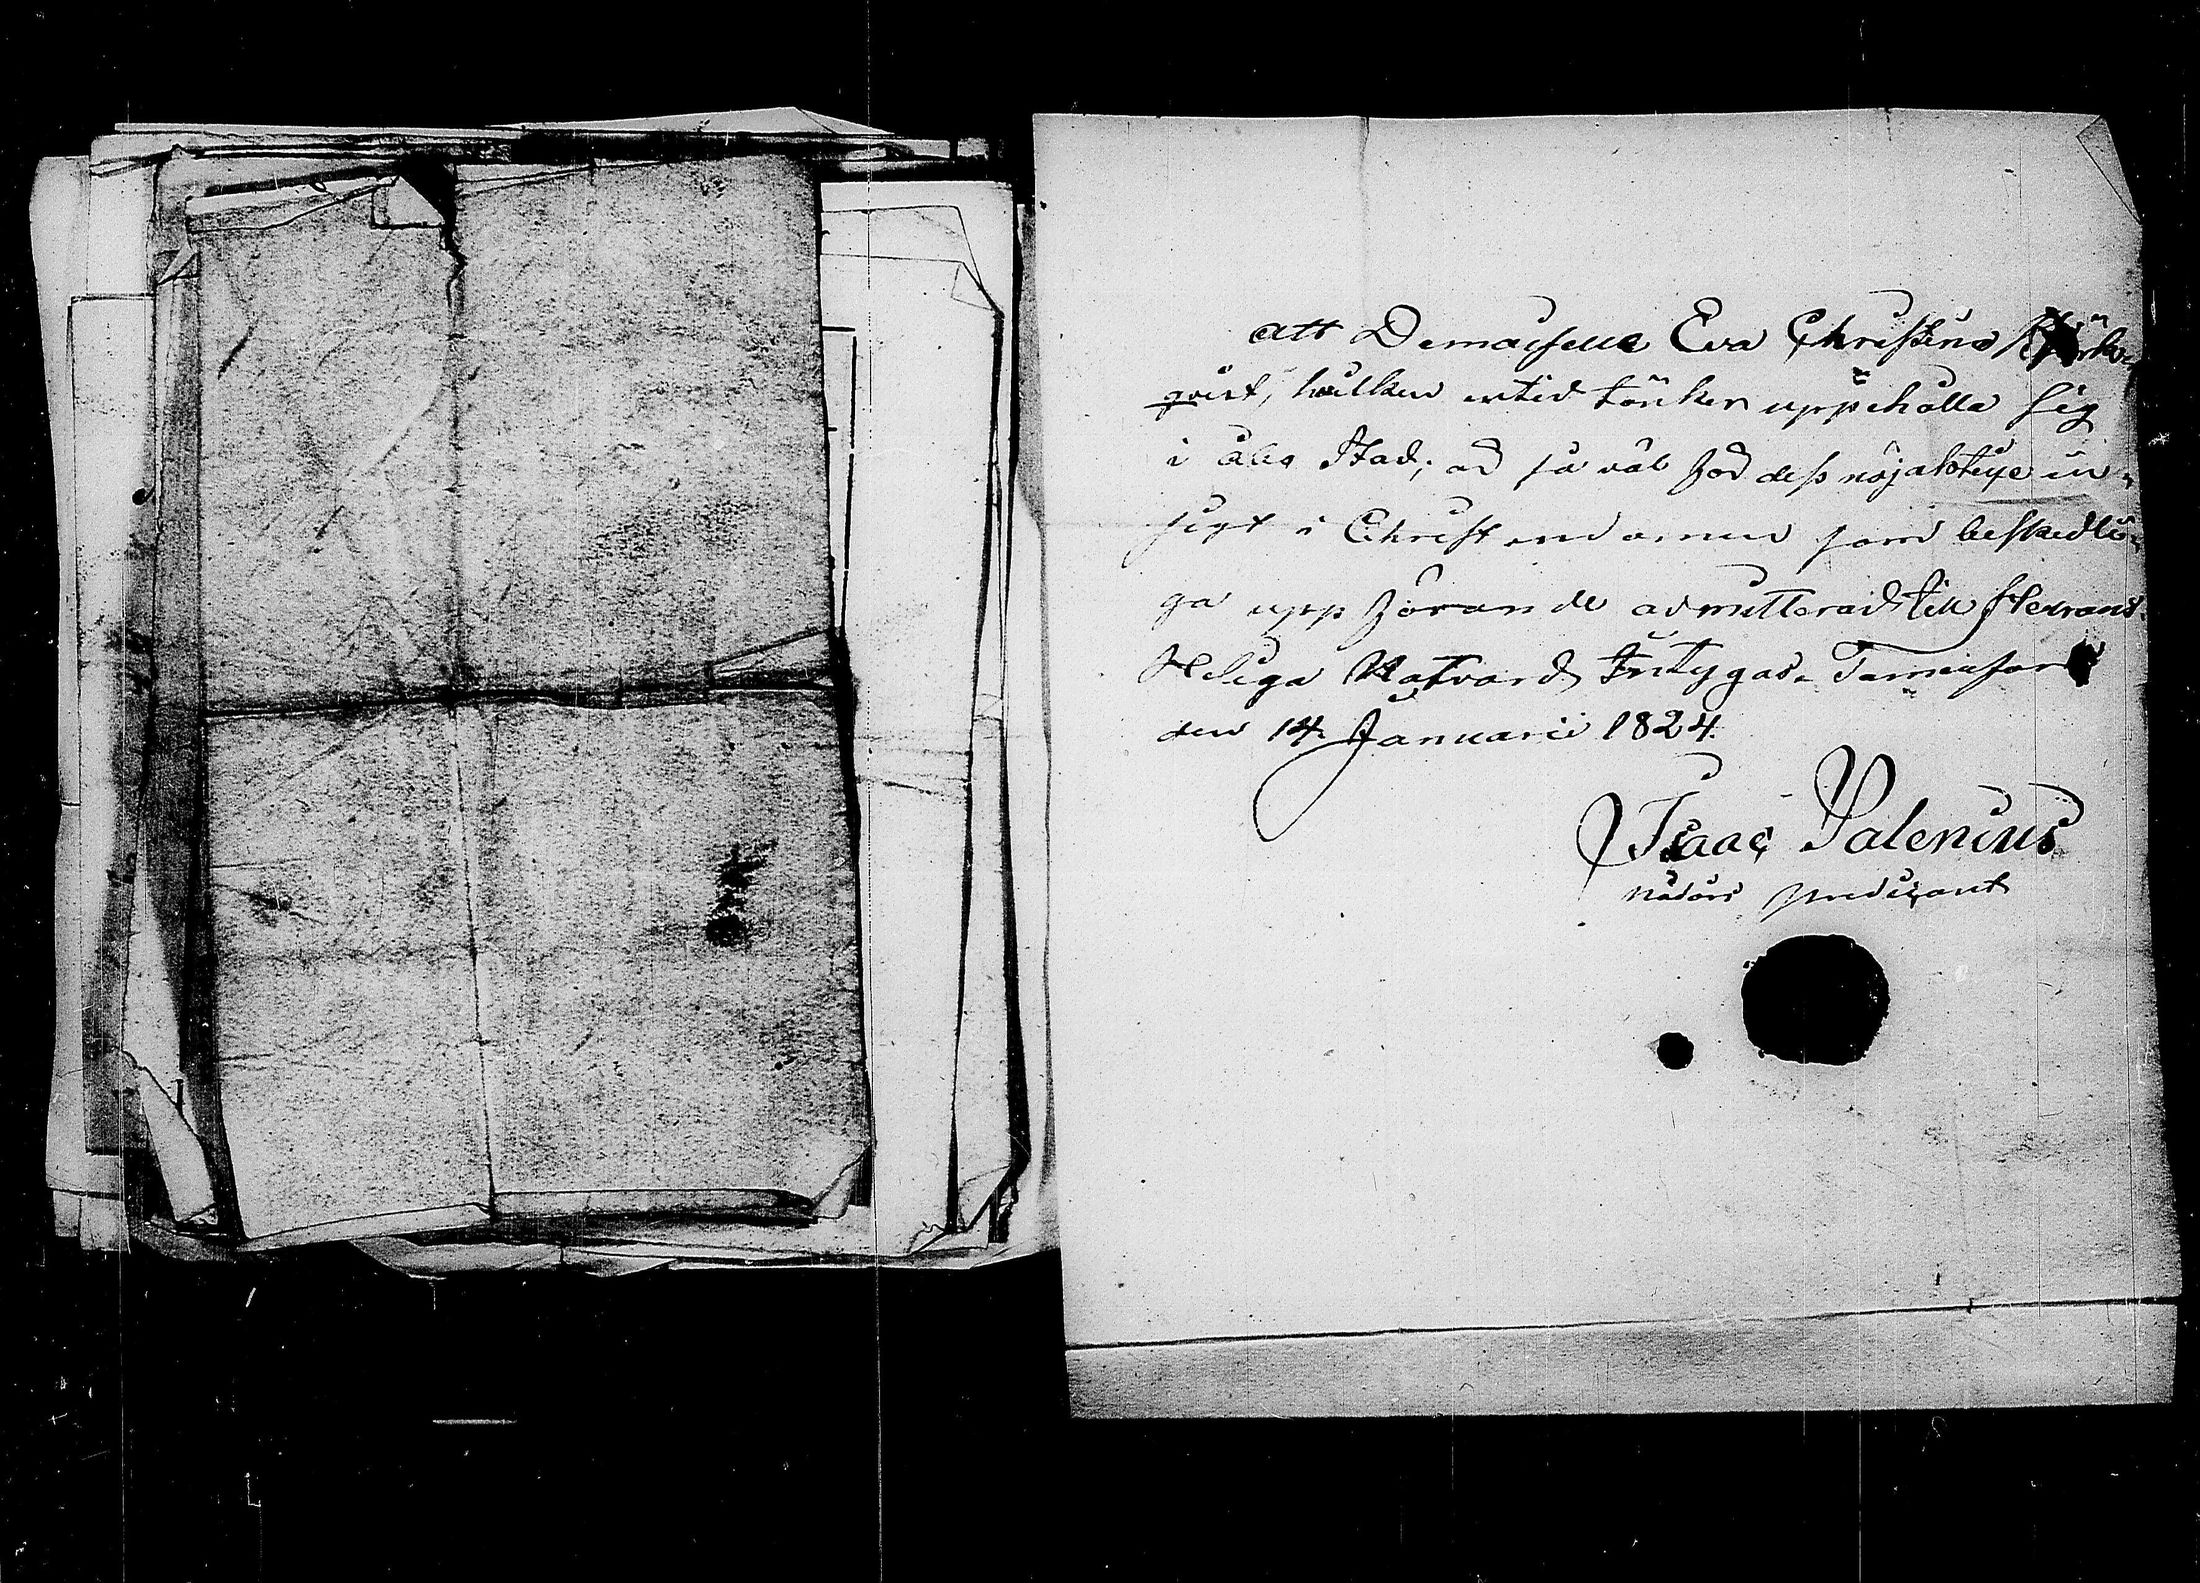 att Demoiselle Eva Christina Björk-
qvist, hvilken en tid tänker uppehålla sig
i Åbo Stad, är så väl för dess nöjaktige in-
sigt i Christendomen som beskedli-
ga uppförande admitterad till Herrans
Heliga Nattvard, Intygas. Tammefors
den 14 Januarii 1824.
Isaac Salenius
nådårs predicant